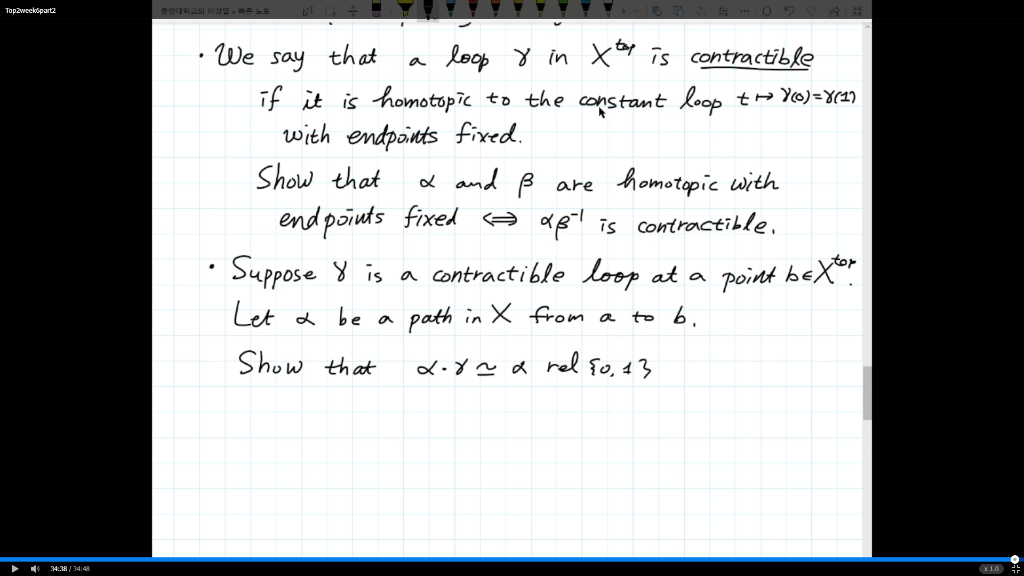 Top2week6part2
중앙대학교의 이상엽 • 빠른 노트
• We say that a loop γ in X^top is contractible
if it is homotopic to the constant loop t ↦ γ(0)=γ(1)
with endpoints fixed.
Show that α and β are homotopic with
endpoints fixed ⟺ αβ⁻¹ is contractible.
• Suppose γ is a contractible loop at a point b∈X^top.
Let α be a path in X from a to b.
Show that α·γ ≃ α rel {0,1}
34:38 / 34:48
x 1.0